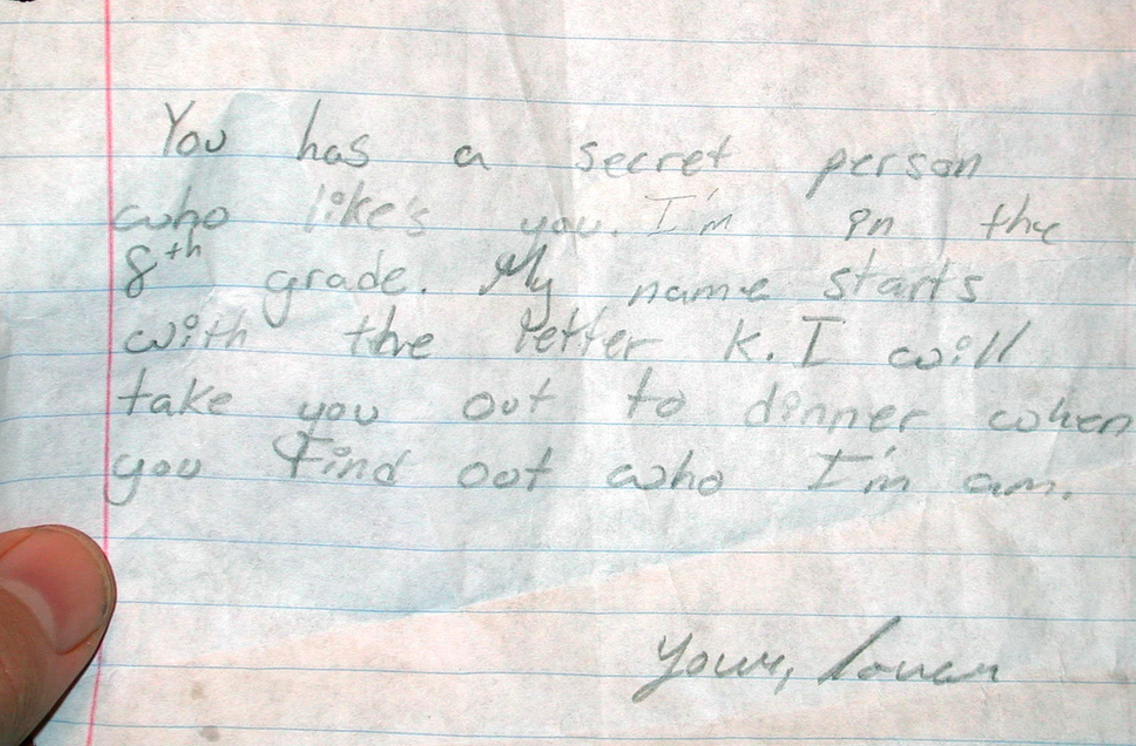 You has a secret person
who like's you. I'm in the
8th grade. My name starts
with the letter K. I will
take you out to dinner when
you Find out who I'm am.
Your, lover